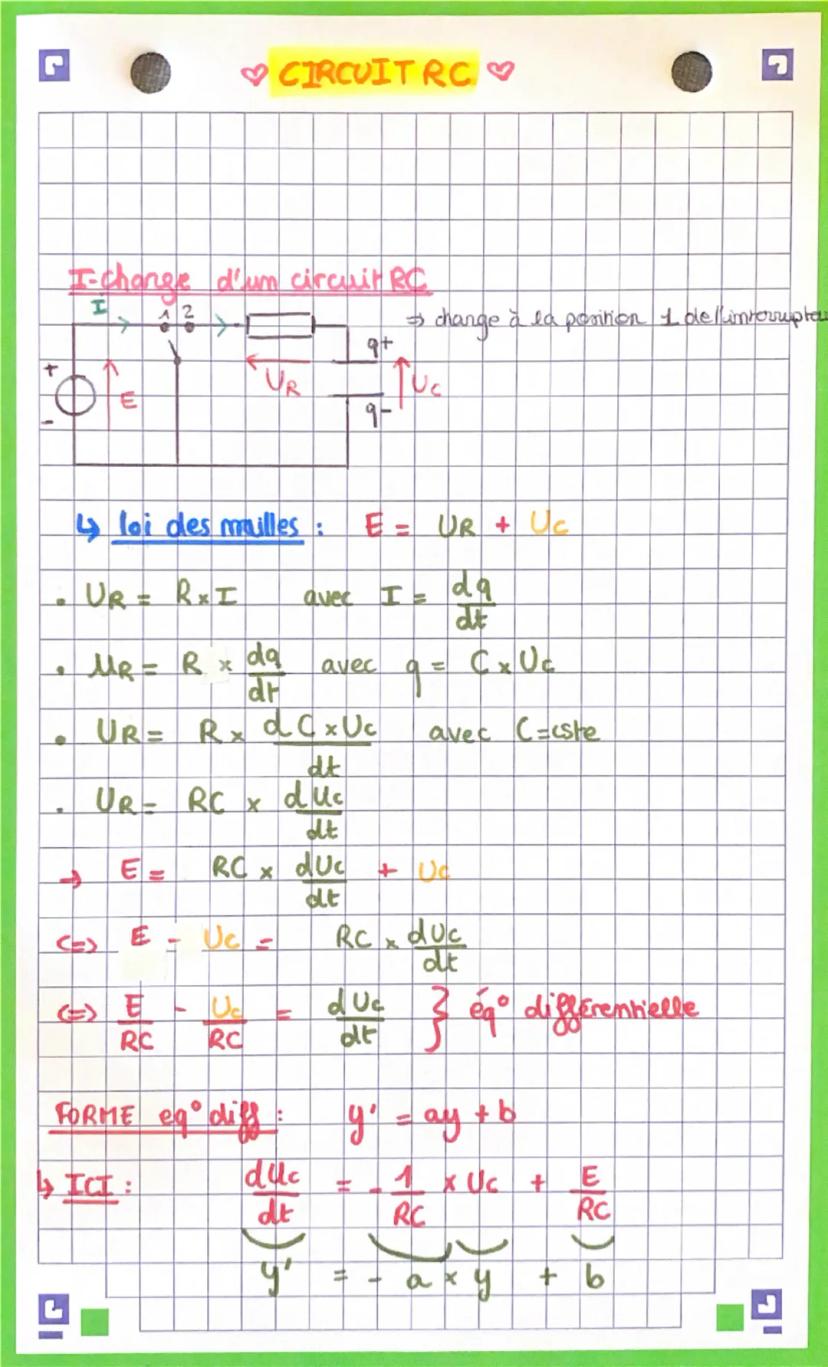 ♡ CIRCUIT RC ♡
I-change d'un circuit RC
I 1 2 ⇒ change à la position 1 de l'interrupteur
+ E - UR q+ q- Uc
↳ loi des mailles : E = UR + Uc
• UR = R×I avec I = dq/dt
• UR = R × dq/dt avec q = C×Uc
• UR = R × dC×Uc/dt avec C=cste
• UR = RC × dUc/dt
→ E = RC × dUc/dt + Uc
<=> E - Uc = RC × dUc/dt
<=> E/RC - Uc/RC = dUc/dt } éq° différentielle
FORME eq° diff : y' = ay + b
↳ ICI : dUc/dt = - 1/RC × Uc + E/RC
y' = - a × y + b